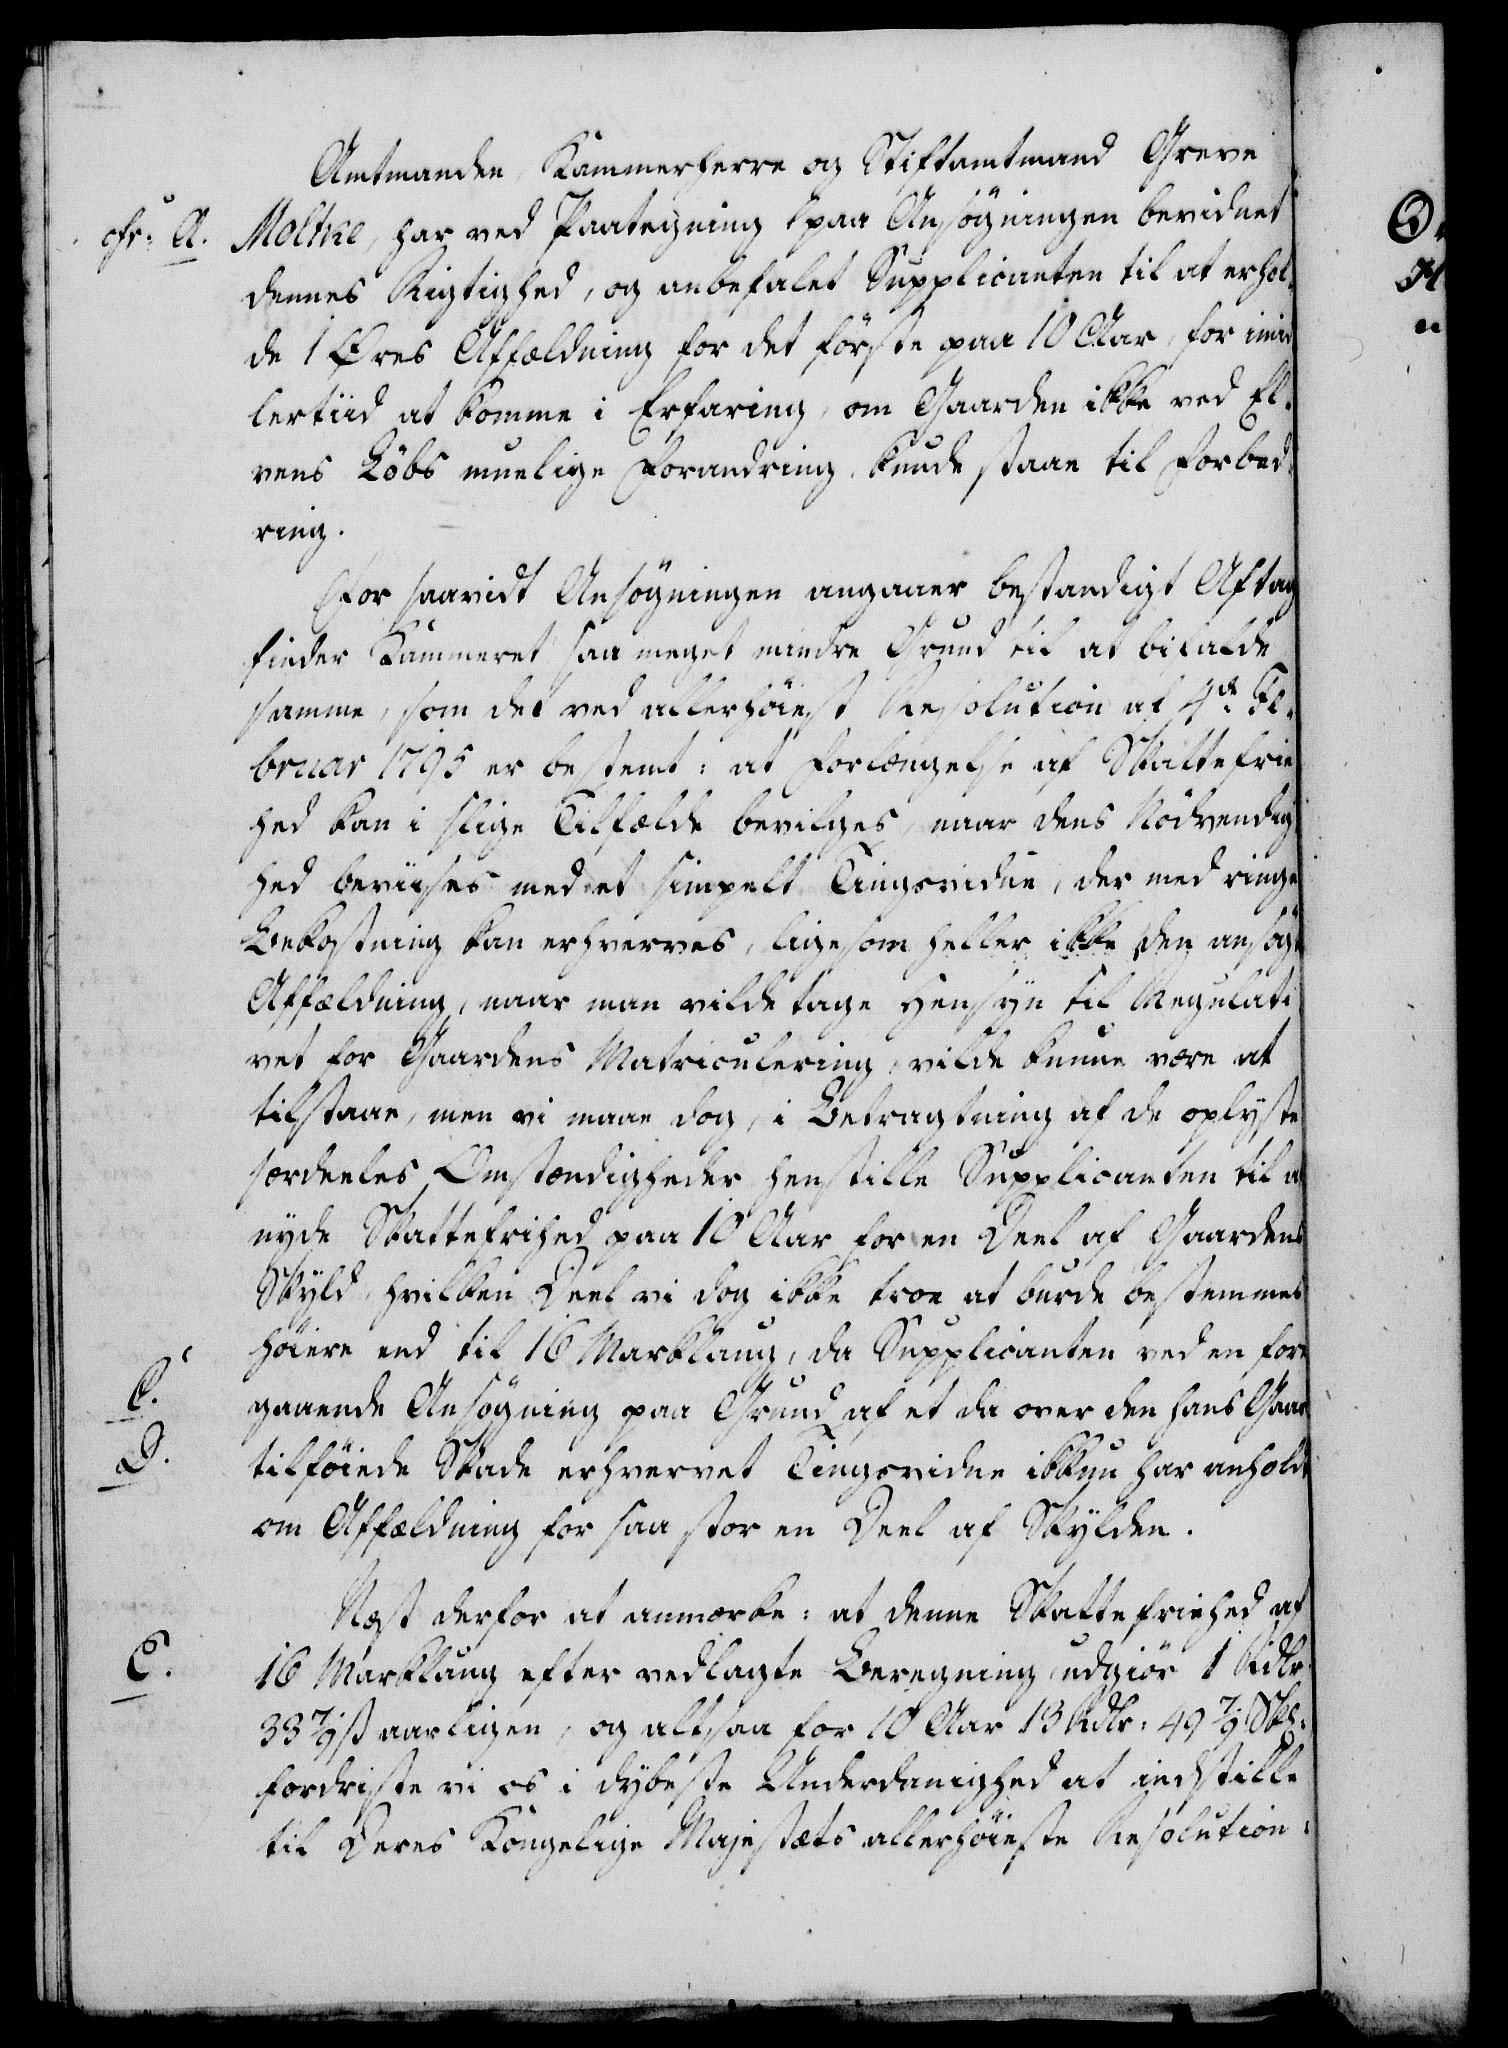 Amtmanden, Kammerherre og Stiftamtmand Greve
cfr: A. Moltke, har ved Paategning paa Ansøgningen bevidnet
dennes Rigtighed, og anbefalet Supplicanten til at erhol-
de 1 Øres Affældning for det første paa 10 Aar, for imid
lertiid at komme i Erfaring, om Gaarden ikke ved El-
vens Løbs muelige Forandring kunde staae til Forbed-
ring.
For saavidt Ansøgningen angaaer bestandigt Aftag
finder Kammeret saa meget mindre Grund til at bifalde
samme, som det ved allerhøiest Resolution af 4de Fe-
bruar 1795 er bestemt: at Forlængelse af Skattefrie
hed kan i slige Tilfælde bevilges, naar dens Nødvendig
hed beviises med et simpelt Tingsvidne, der med ringe
Bekostning kan erhverves, ligesom heller ikke den ansøgte
Affældning, naar man vilde tage Hensyn til Regulati
vet for Gaardens Matriculering, vilde kunne være at
tilstaae, men vi maae dog, i Betragtning af de oplyste
særdeeles Omstændigheder henstille Supplicanten til at
nyde Skattefrihed paa 10 Aar for en Deel af Gaardens
Skyld, hvilken Deel vi dog ikke troe at burde bestemmes
høiere end til 16 Marklaug, da Supplicanten ved en fore
C. gaaende Ansøgning paa Grund af et da over den hans Gaard
D. tilføiede Skade erhvervet Tingsvidne ikkun har anholdt
om Affældning for saa stor en Deel af Skylden.
Næst derfor at anmærke: at denne Skattefriehed af
E. 16 Marklaug efter vedlagte Beregning udgiør 1 Rdlr.
33 7/9 ß aarligen, og altsaa for 10 Aar 13 Rdlr: 49 7/9 Sk:
fordriste vi os i dybeste Underdanighed at indstille
til Deres Kongelige Majestæts allerhøieste Resolution: